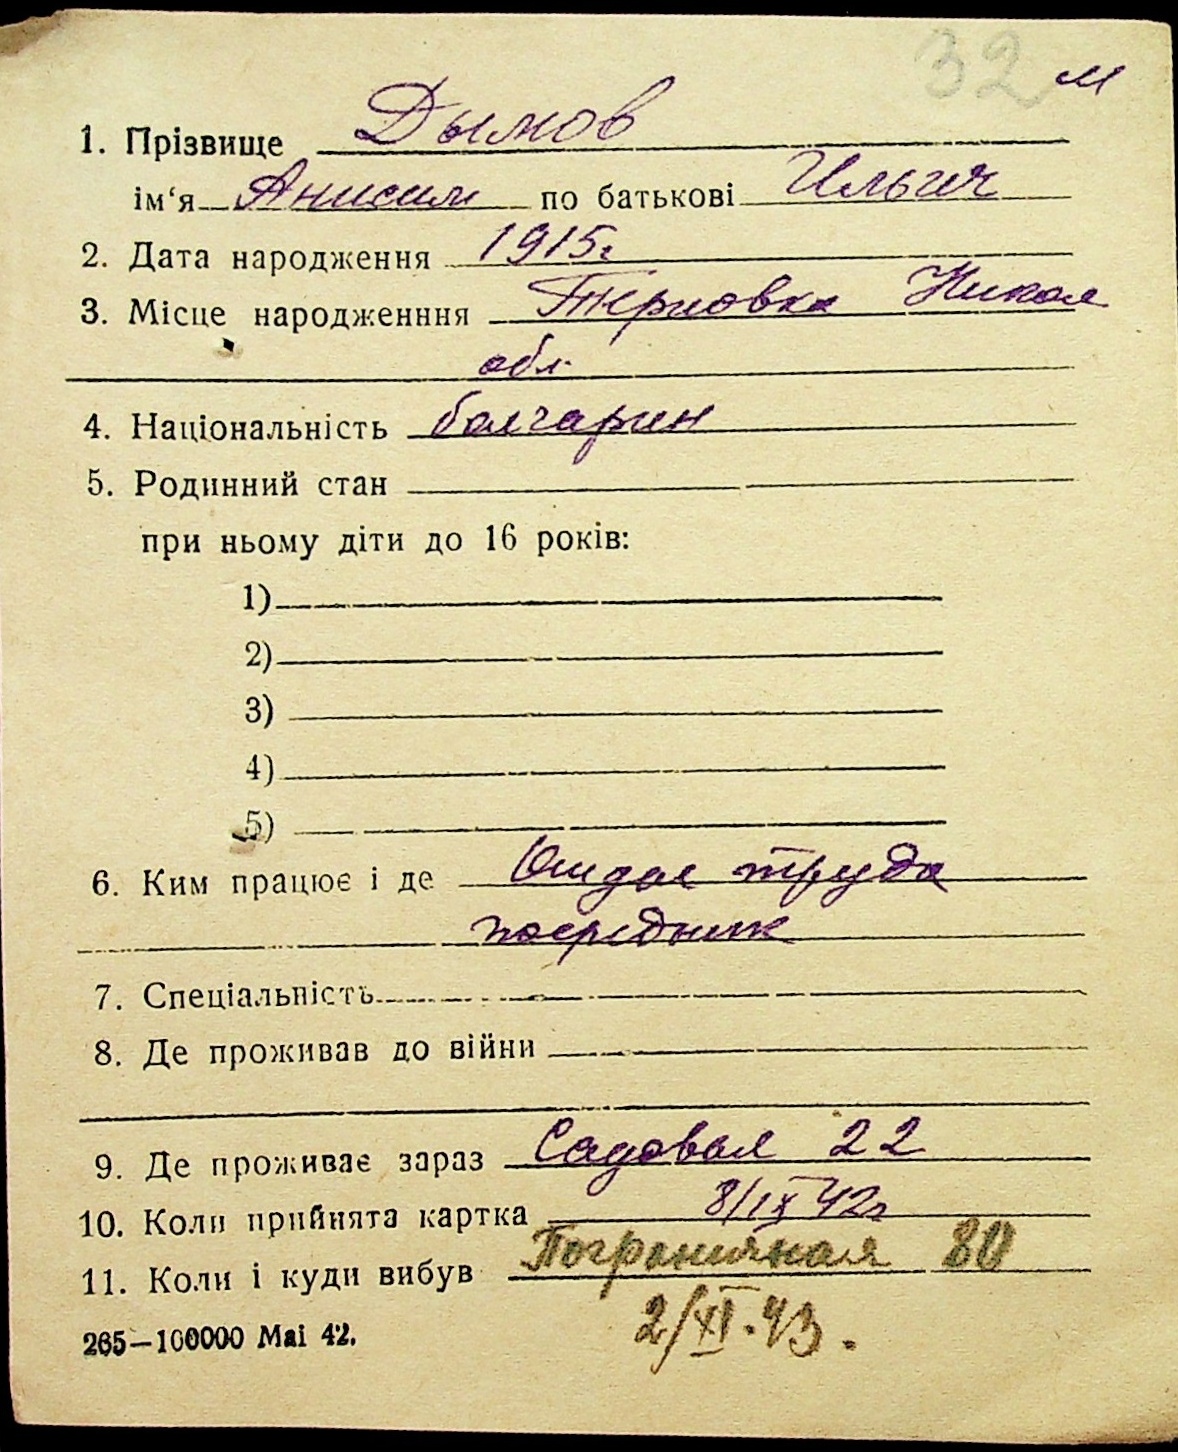 32 м
1. Прізвище Дымов
ім‘я Анисим по батькові Ильич
2. Дата народження 1915г
3. Місце народженння Терновка Никол
обл.
4. Національність болгарин
5. Родинний стан
при ньому діти до 16 років:
1)
2)
3)
4)
5)
6. Ким працює і де труда
посредник
7. Спеціальність
8. Де проживав до війни
9. Де проживає зараз Садовая 22
10. Коли прийнята картка 8/IX 42г
11. Коли і куди вибув Пограничная 80
265—100000 Mai 42. 2/XI.43.